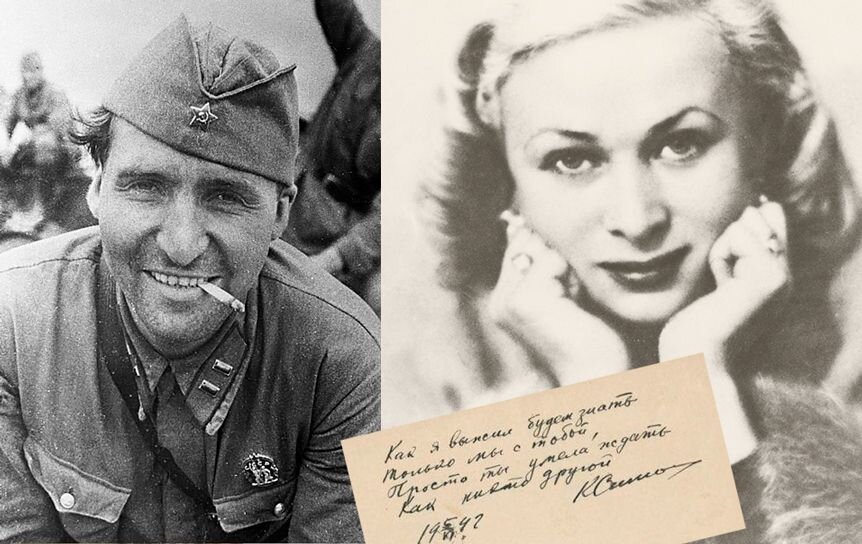 Как я выжил будем знать
Только мы с тобой,
Просто ты умела ждать
Как никто другой
КСимо
19 42